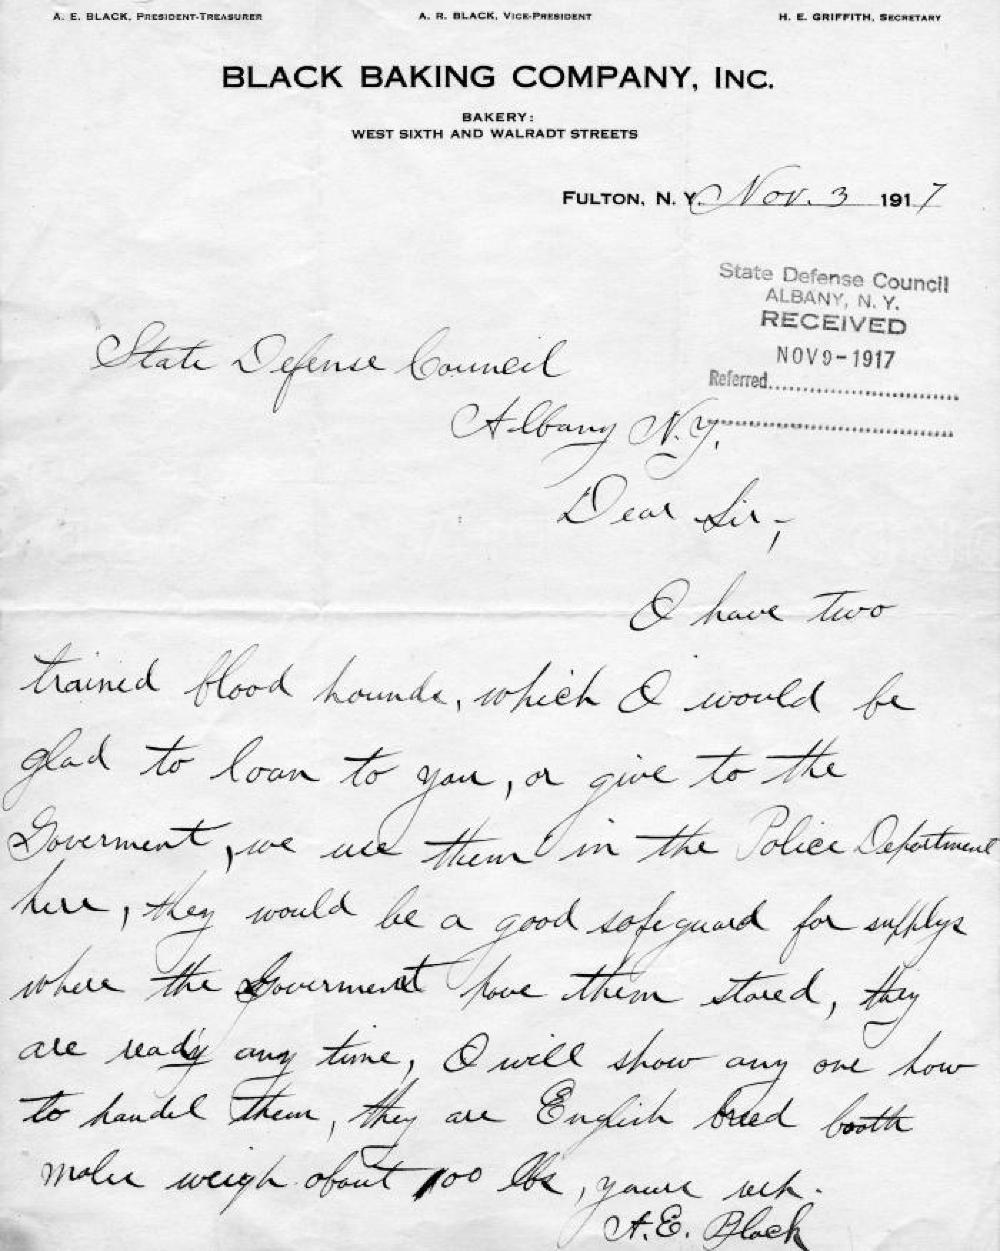 A. E. BLACK, PRESIDENT-TREASURER A. R. BLACK, VICE-PRESIDENT H. E. GRIFFITH, SECRETARY
BLACK BAKING COMPANY, INC.
BAKERY:
WEST SIXTH AND WALRADT STREETS
FULTON, N. Y. Nov. 3 1917
State Defense Council
ALBANY, N. Y.
RECEIVED
NOV 9-1917
Referred
State Defense Council
Albany N.Y.
Dear Sir,
I have two
trained blood hounds, which I would be
glad to loan to you, or give to the
Goverment, we use them in the Police Department
here, they would be a good safeguard for supplys
where the Goverment have them stored, they
are ready any time, I will show any one how
to handel them, they are English breed booth
males weigh about 100 lbs, yours
A. E. Black